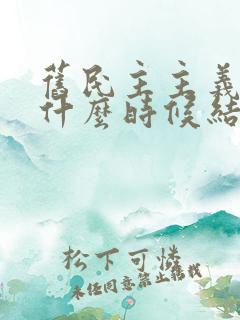 舊民主主義
什麼時候結
松下可憐
未經同意禁止轉載